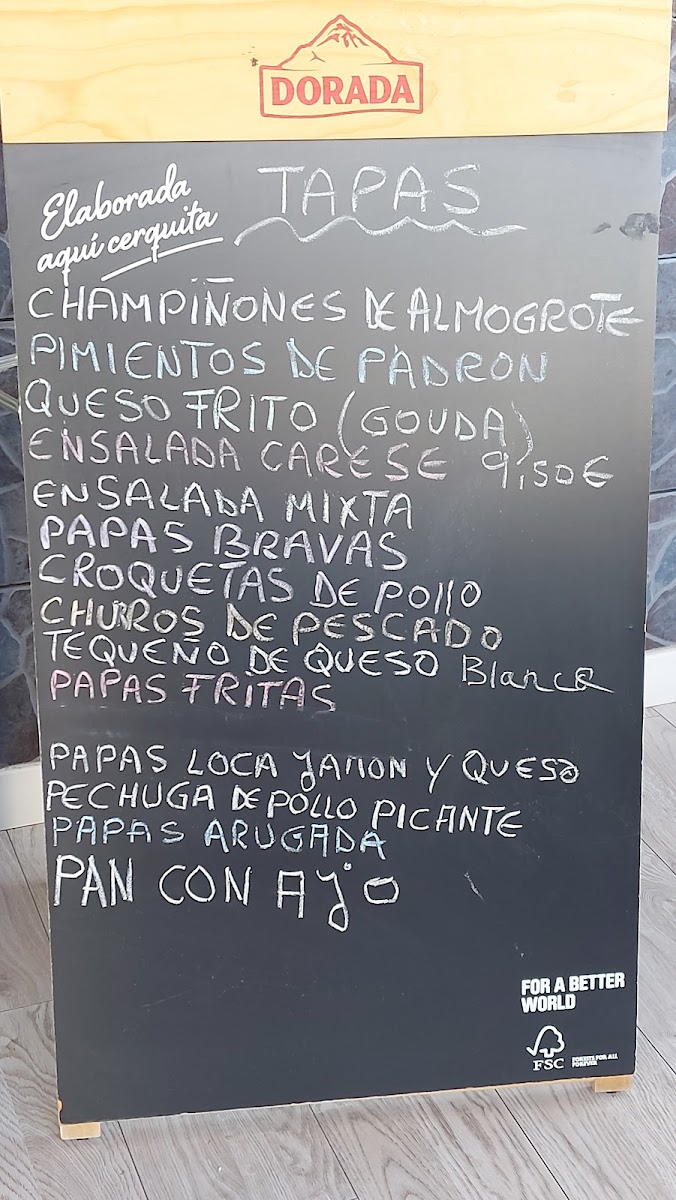 DORADA
Elaborada
aquí cerquita
TAPAS
CHAMPIÑONES DE ALMOGROTE
PIMIENTOS DE PADRON
QUESO FRITO (GOUDA)
ENSALADA CARESE 9,50€
ENSALADA MIXTA
PAPAS BRAVAS
CROQUETAS DE POllO
CHURROS DE PESCADO
TEQUEÑO DE QUESO Blanco
PAPAS FRITAS
PAPAS LOCA JAMON Y QUESO
PECHUGA DE POLLO PICANTE
PAPAS ARUGADA
PAN CON AJO
FOR A BETTER
WORLD
FSC
FORESTS FOR ALL
FOREVER